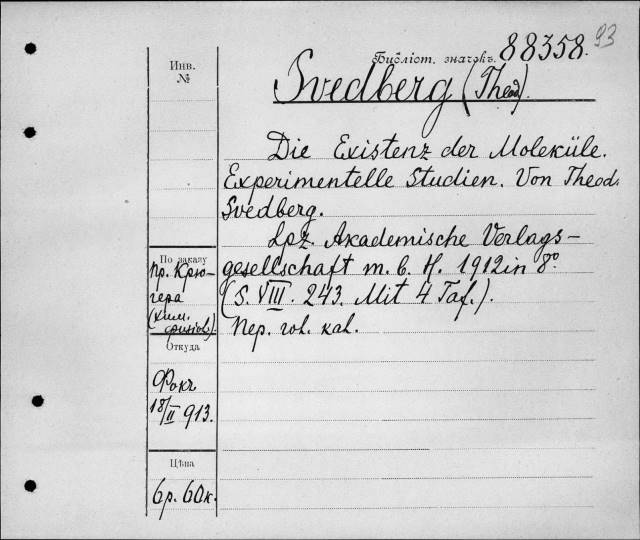 93
Библіот. значокъ. 88358.
Инв.
№
Svedberg (Theod).
Die Existenz der Moleküle.
Experimentelle Studien. Von Theod.
Svedberg.
Lpz. Akademische Verlags-
gesellschaft m. b. H. 1912 in 8º
(S. VIII. 243. Mit 4 Taf.).
По заказу
пр. Крю-
гера
(хим.
Пер. кол. кал.
Откуда
Фокъ
18/II 913.
Цѣна
6р. 60к.